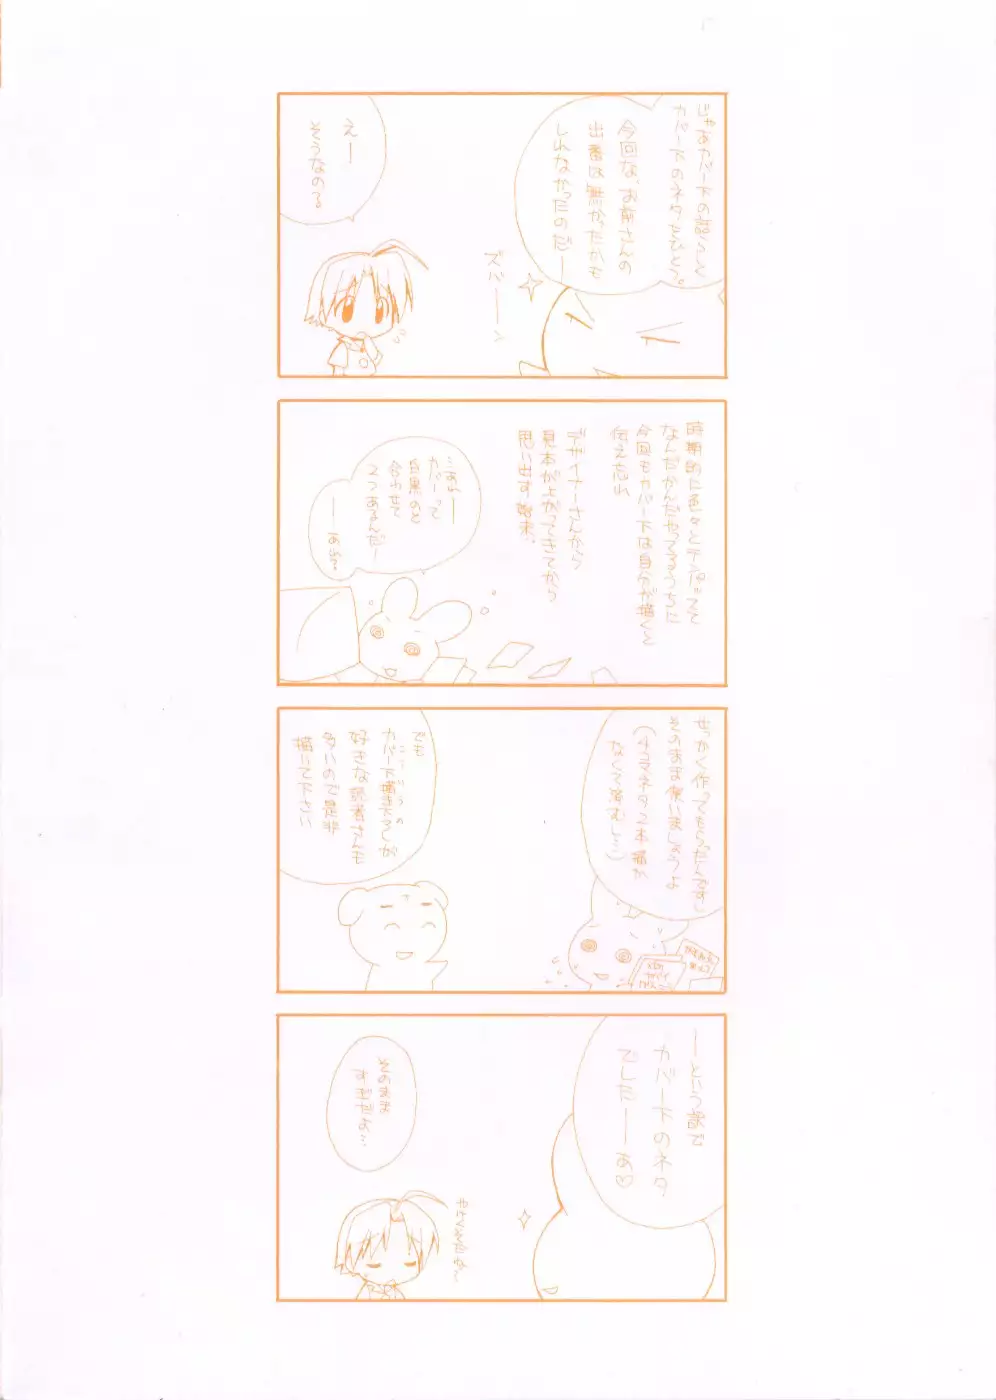 じゃあカバー下の話らしく
カバー下のネタをひとつ。
今回な、お前さんの
出番は無かったかも
しれなかったのだー
ズバーーン
えー
そうなのる
時期的に色々とテンパってて
なんだかんだやってるうちに
今回もカバー下は自分が描くと
伝え忘れ
デザイナーさんから
見本が上がってきてから
思い出す始末。
…あぁー
カバーって
白黒のと
合わせて
2つあるんだー
――あれ?
せっかく作ってもらったんですし
そのまま使いましょうよ
(4コマネタ2本描か
なくて済むし…)
でも
カバー下描き下ろしが
好きな読者さんも
多いので是非
描いて下さい
ーという訳で
カバー下のネタ
でしたーーあ♡
そのまま
すぎだよ…